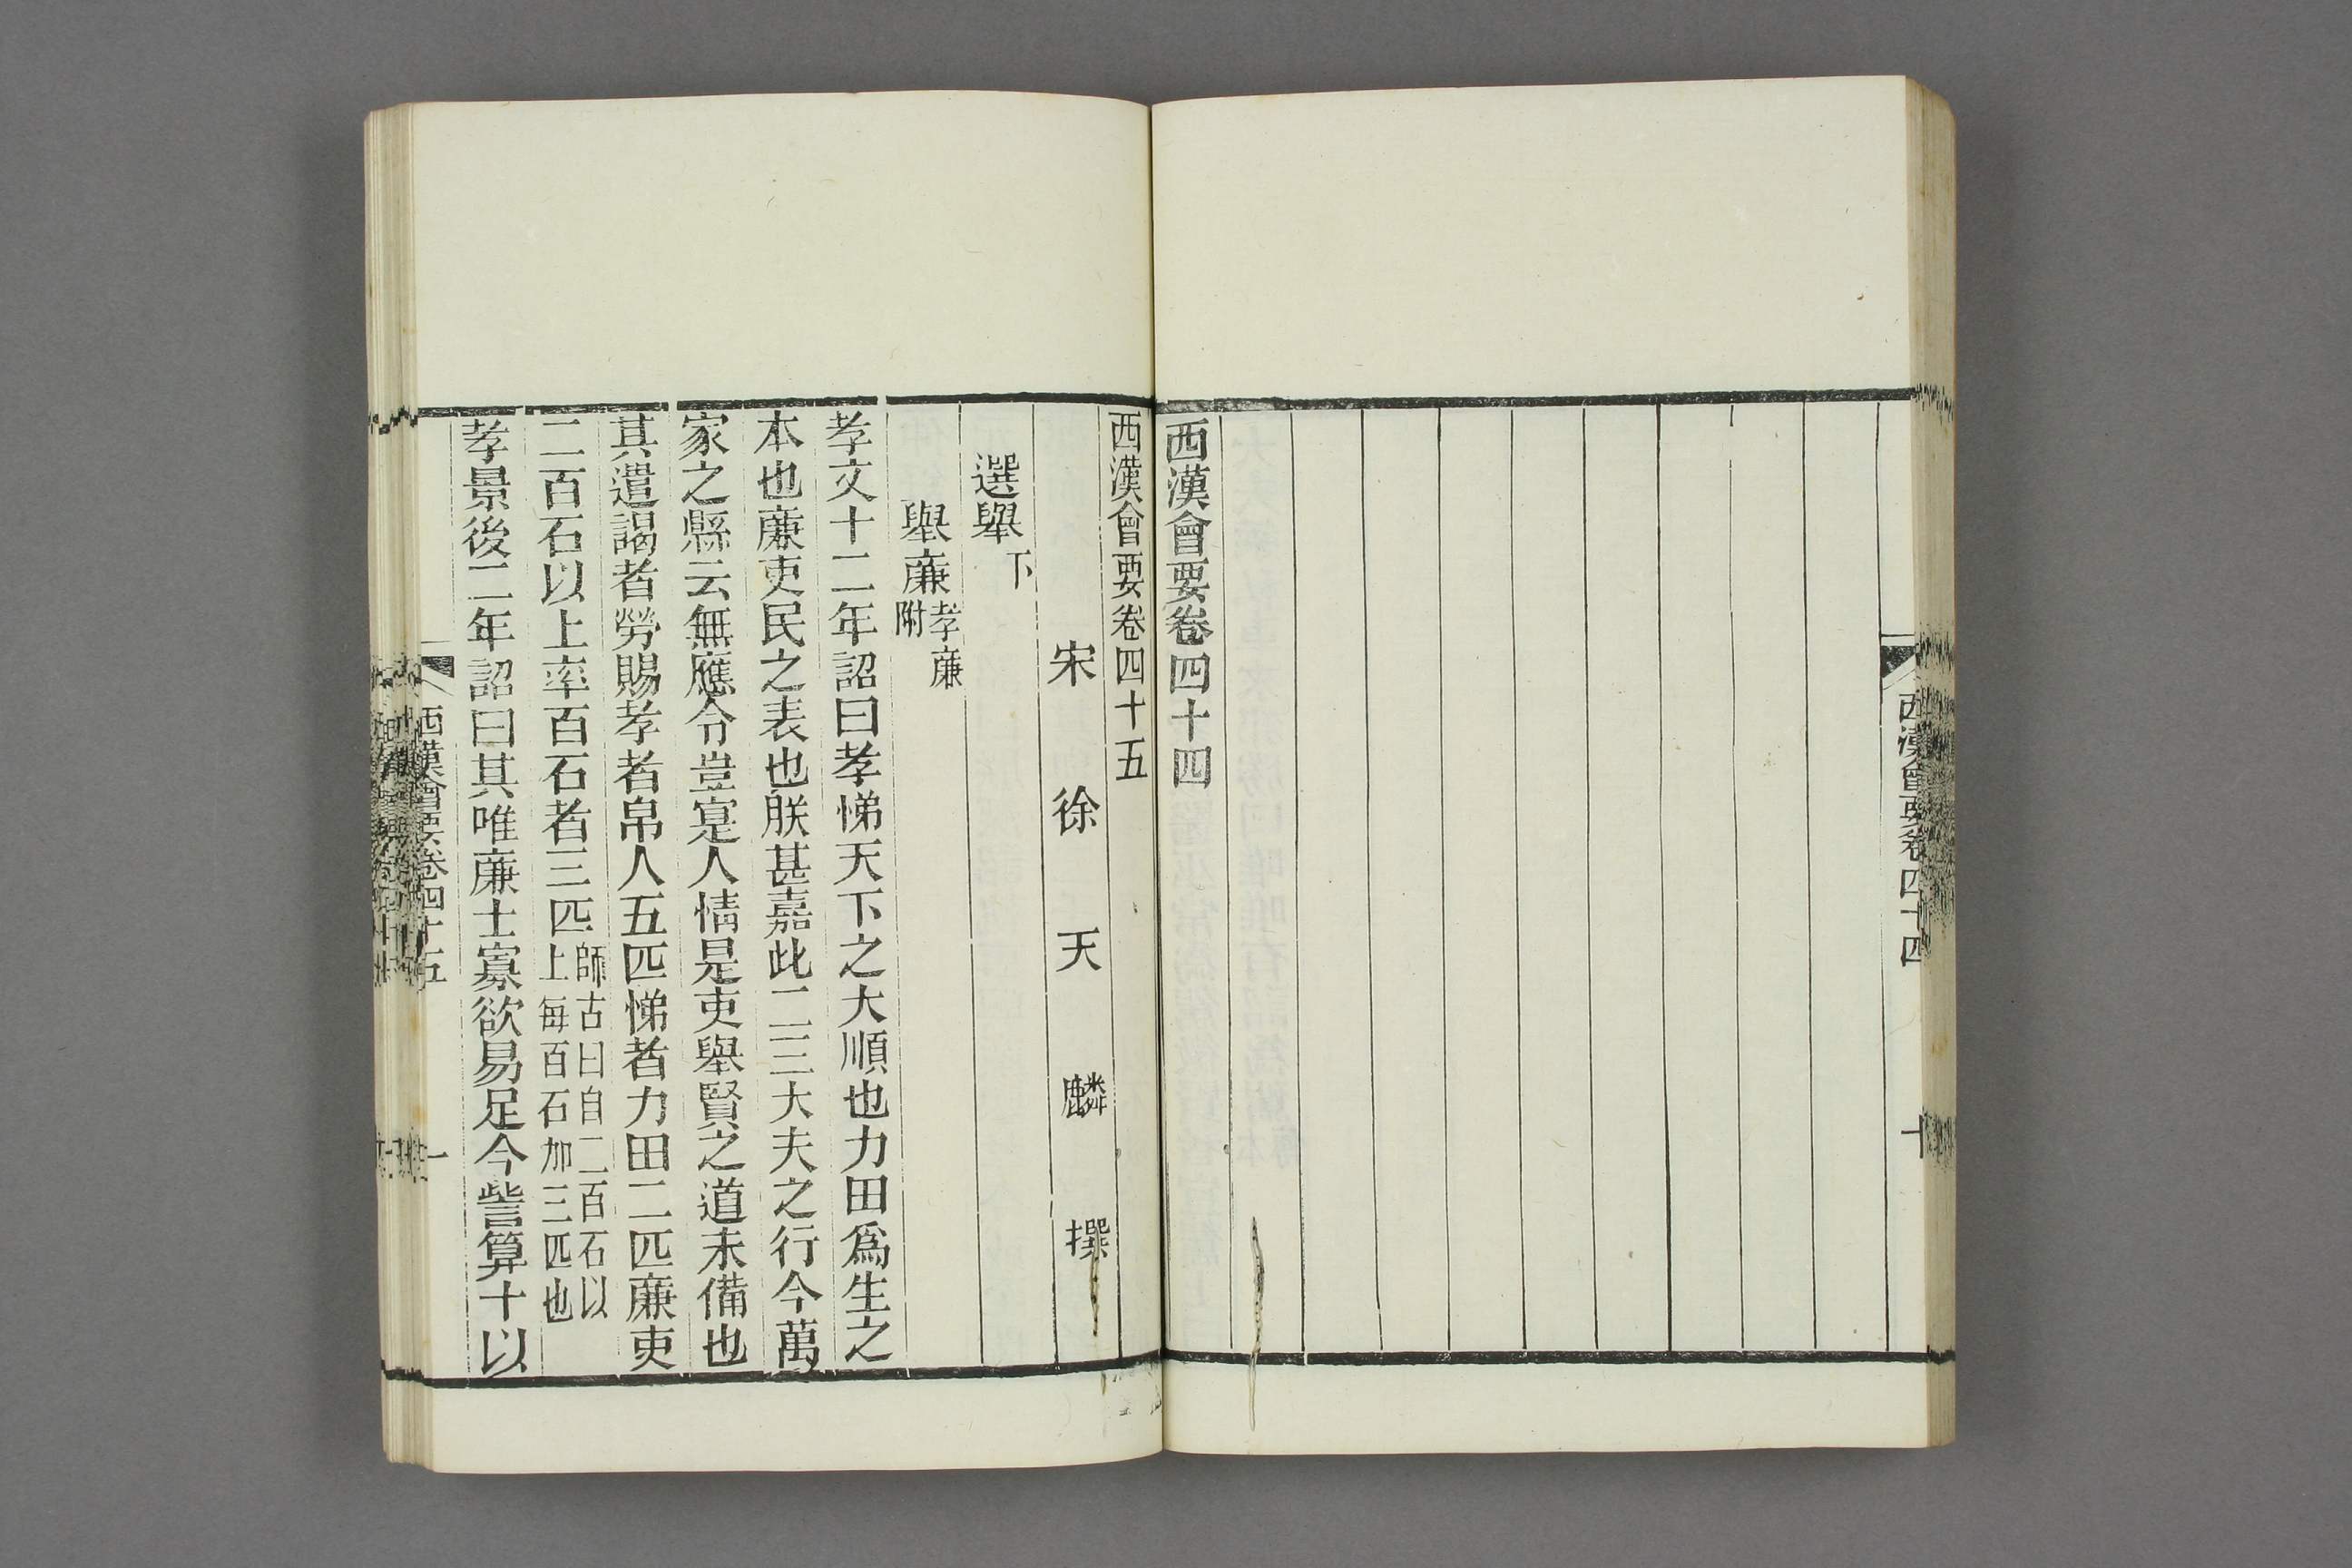 西漢會要卷四十四
十
西漢會要卷四十四
西漢會要卷四十五
宋徐天麟撰
選舉下
舉廉孝廉附
孝文十二年詔曰孝悌天下之大順也力田爲生之
本也廉吏民之表也朕甚嘉此二三大夫之行今萬
家之縣云無應令豈寔人情是吏舉賢之道未備也
其遣謁者勞賜孝者帛人五匹悌者力田二匹廉吏
二百石以上率百石者三匹師古曰自二百石以上每百石加三匹也
孝景後二年詔曰其唯廉士寡欲易足今訾算十以
西漢會要卷四十五
一